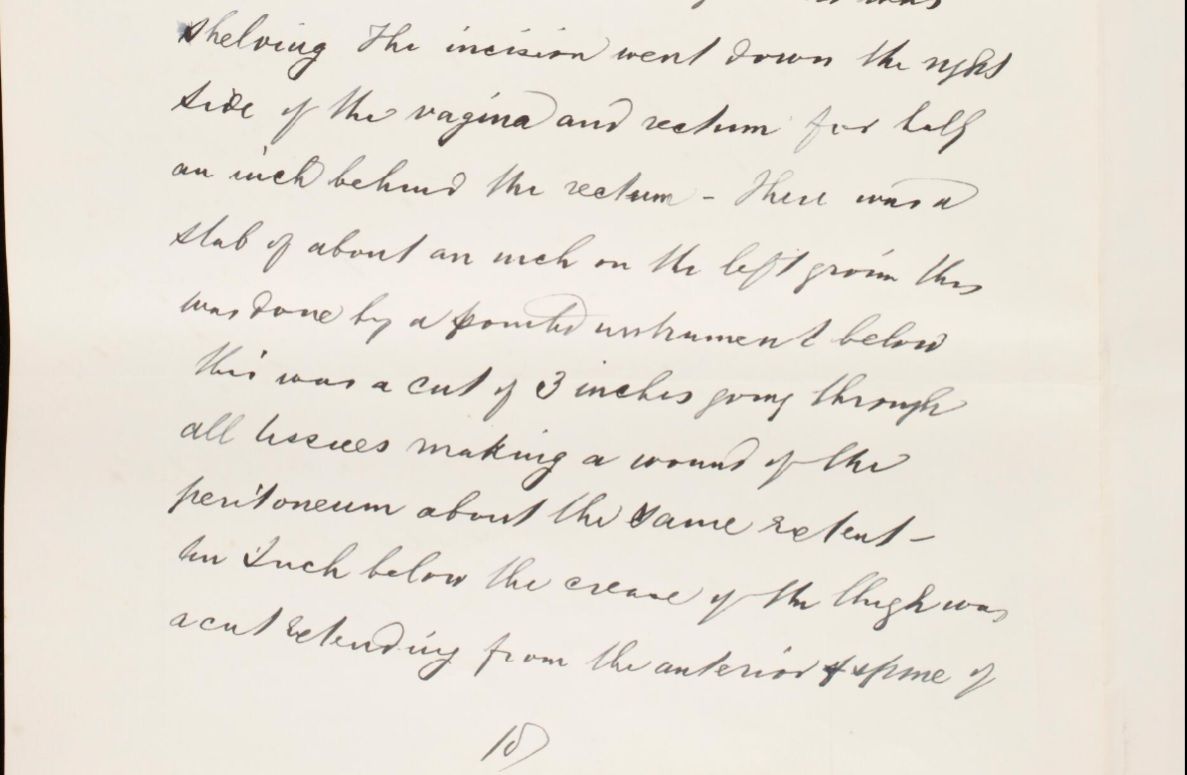 was
shelving The incision went down the right
side of the vagina and rectum for half
an inch behind the rectum - There was a
stab of about an inch on the left groin this
was done by a pointed instrument below
this was a cut of 3 inches going through
all tissues making a wound of the
peritoneum about the same extent -
An Inch below the crease of the thigh was
a cut extending from the anterior spine of
18